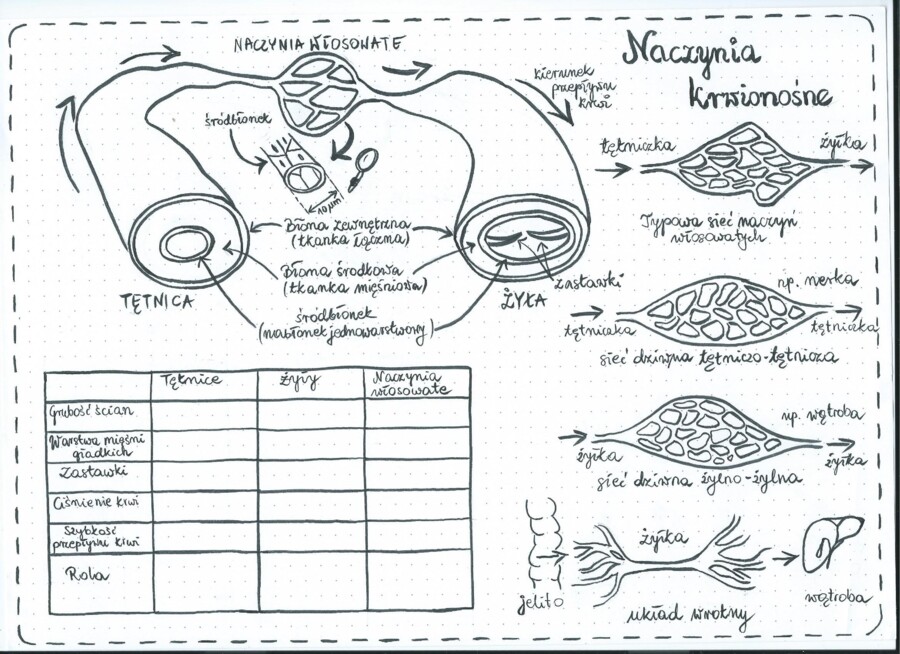 NACZYNIA WŁOSOWATE
Naczynia
krwionośne
kierunek
przepływu
krwi
śródbłonek
10 µm
Błona zewnętrzna
(tkanka łączna)
Błona środkowa
(tkanka mięśniowa)
śródbłonek
(nabłonek jednowarstwowy)
TĘTNICA
ŻYŁA
zastawki
tętniczka
żyłka
Typowa sieć naczyń
włosowatych
np. nerka
tętniczka
tętniczka
sieć dziwna tętniczo-tętnicza
np. wątroba
żyłka
żyłka
sieć dziwna żylno-żylna
żyłka
jelito
wątroba
układ wrotny
Tętnice
żyły
Naczynia
włosowate
Grubość ścian
Warstwa mięśni
gładkich
Zastawki
Ciśnienie krwi
Szybkość
przepływu krwi
Rola